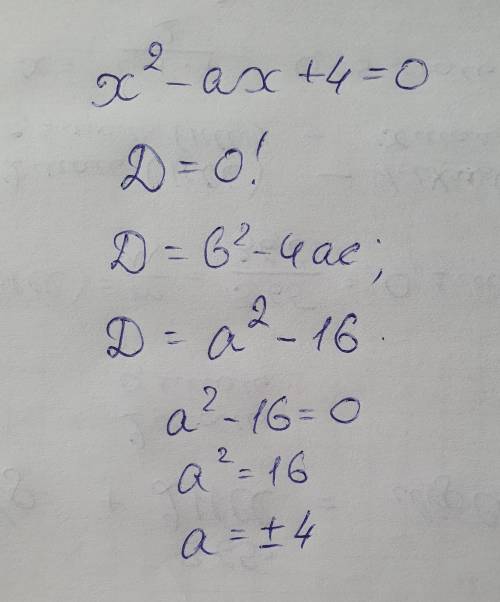 x² - ax + 4 = 0
D = 0!
D = b² - 4ac;
D = a² - 16.
a² - 16 = 0
a² = 16
a = ± 4